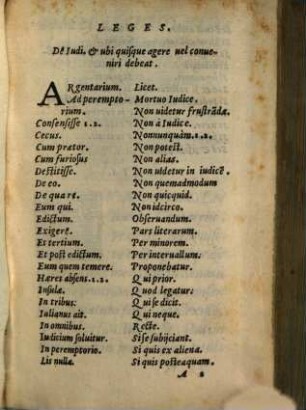 LEGES.
De Iudi. & ubi quisque agere uel conue-
niri debeat.
ARgentarium.
Ad perempto-
rium.
Consensisse 1.2.
Cecus.
Cum prætor.
Cum furiosus
Destitisse.
De eo.
De qua re.
Eum qui.
Edictum.
Exigere.
Et tertium.
Et post edictum.
Eum quem temere.
Hæres absens.1.2.
Insulæ
In tribus:
Iulianus ait.
In omnibus.
Iudicium soluitur.
In peremptorio.
Lis nullæ.
Licet.
Mortuo Iudice.
Non uidetur frustrãdæ.
Non à Iudice.
Nonnunquàm.1.2.
Non potest.
Non alias.
Non uidetur in iudicẽ.
Non quemadmodum
Non quicquid.
Non idcirco.
Obseruandum.
Pars literarum.
Per minorem.
Per interuallum:
Proponebatur.
Qui prior.
Quod legatur:
Qui se dicit.
Qui neque.
Recte.
Si se subijciant.
Si quis ex aliena.
Si quis posteaquam.
A 2